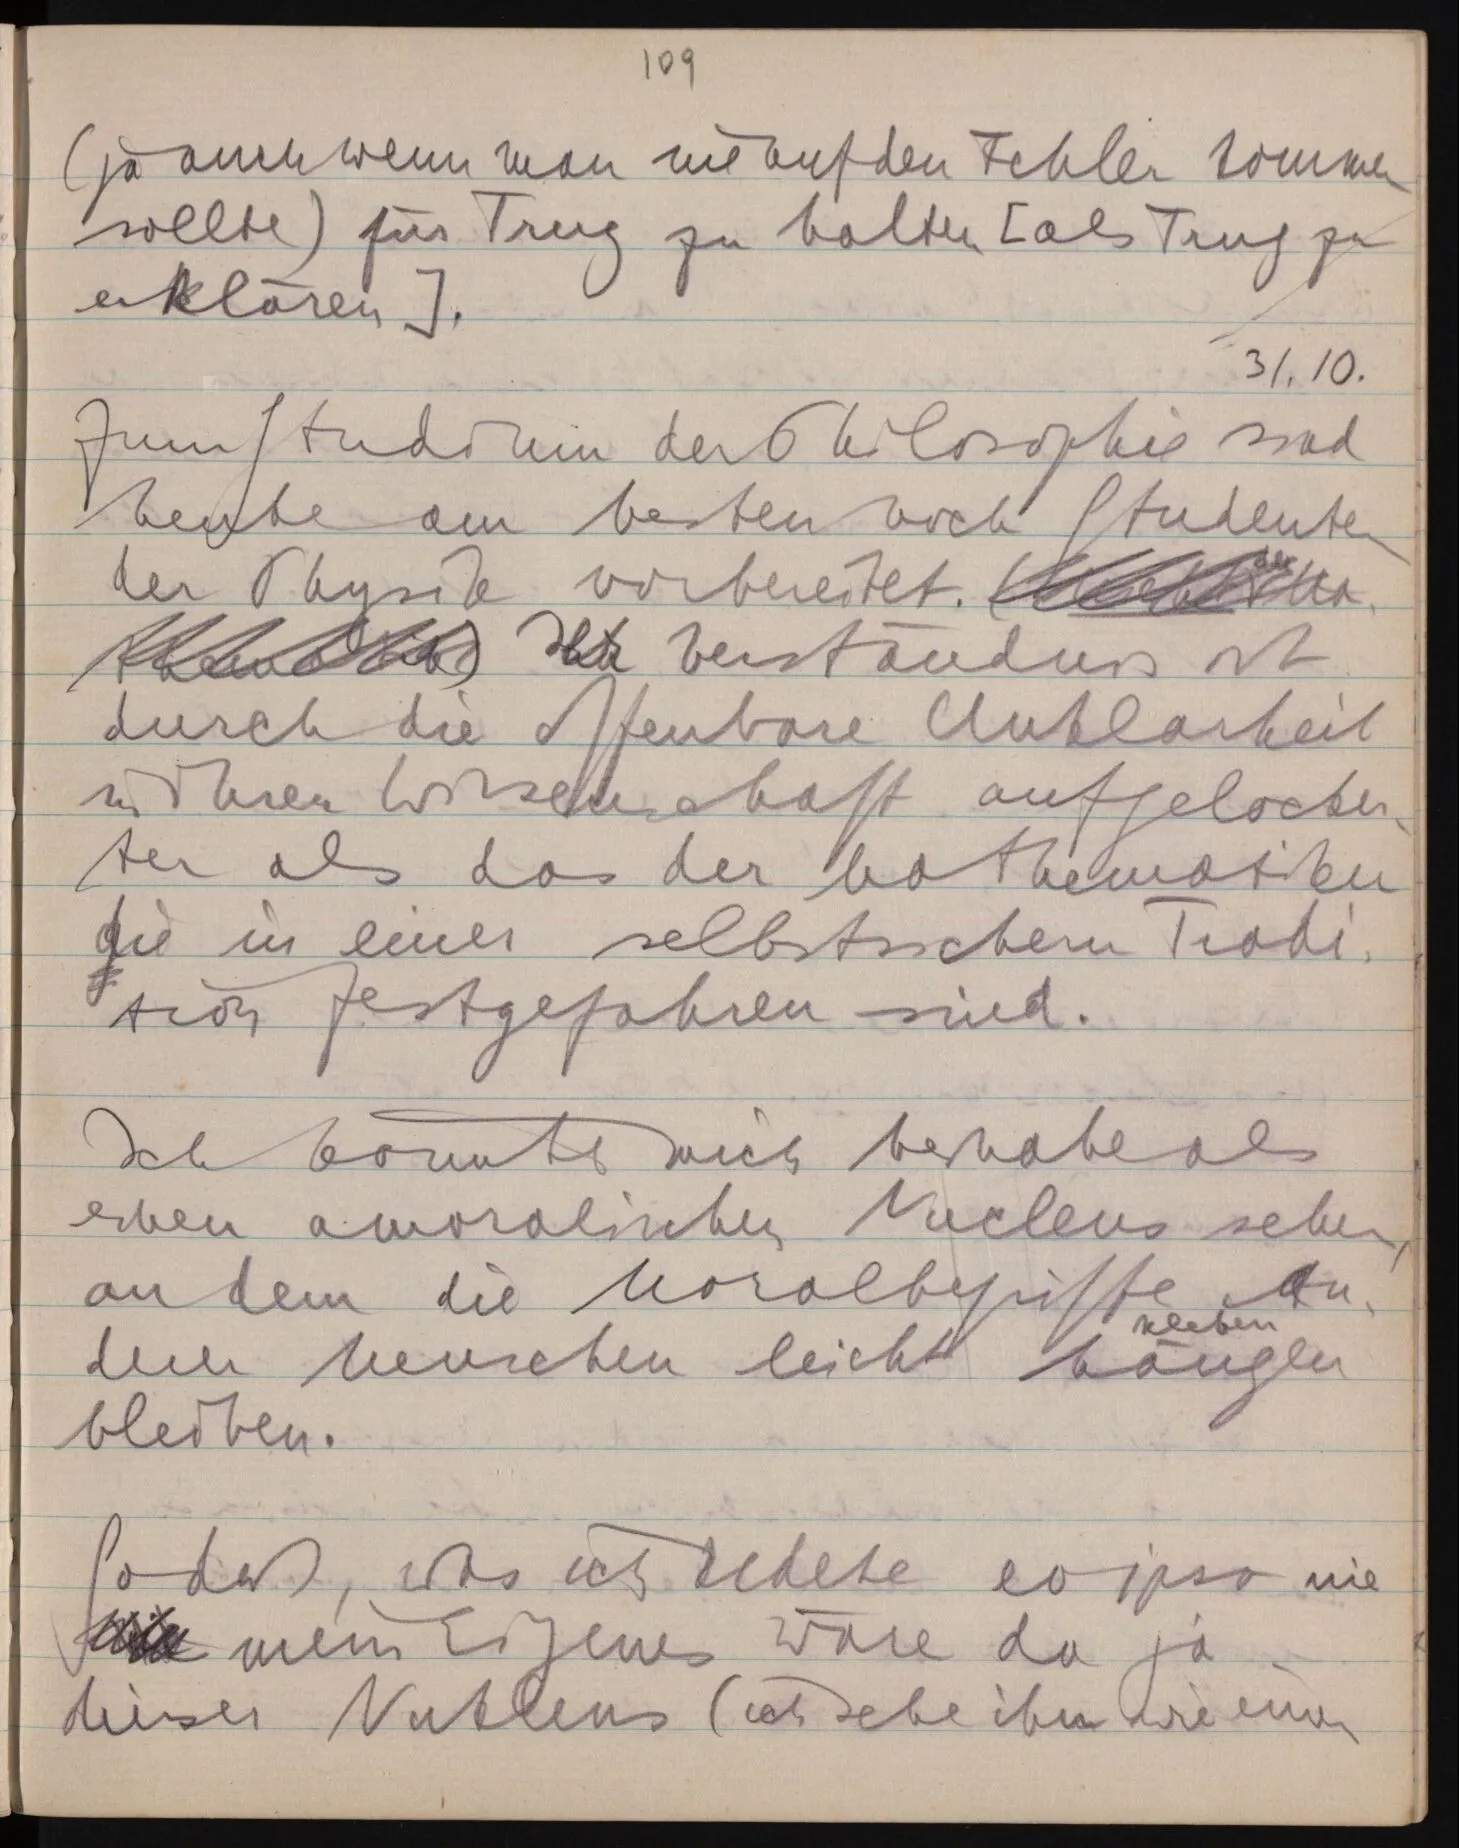 109
(ja auch wenn man nie auf den Fehler kommen
sollte) für Trug zu halten [als Trug zu
erklären].
31.10.
Zum Studium der Philosophie sind
heute am besten noch Studenten
der Physik vorbereitet.
Ihr Verständnis ist
durch die offenbare Unklarheit
in ihrer Wissenschaft aufgelocker-
ter als das der Mathematiker
die in einer selbstsichern Tradi-
tion festgefahren sind.
Ich könnte mich beinahe als
einen amoralischen Nucleus sehen,
an dem die Moralbegriffe An-
derer Menschen leicht hängen
kleben
bleiben.
So daß, was ich redete eo ipso nie
mein Eigenes wäre da ja
dieser Nukleus (ich sehe ihn wie einen